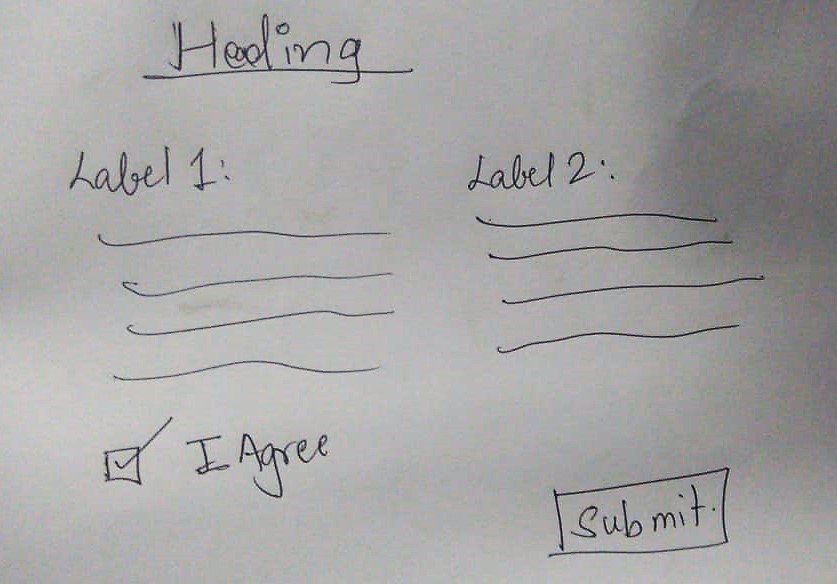 Heading
Label 1:
Label 2:
I Agree
Submit.